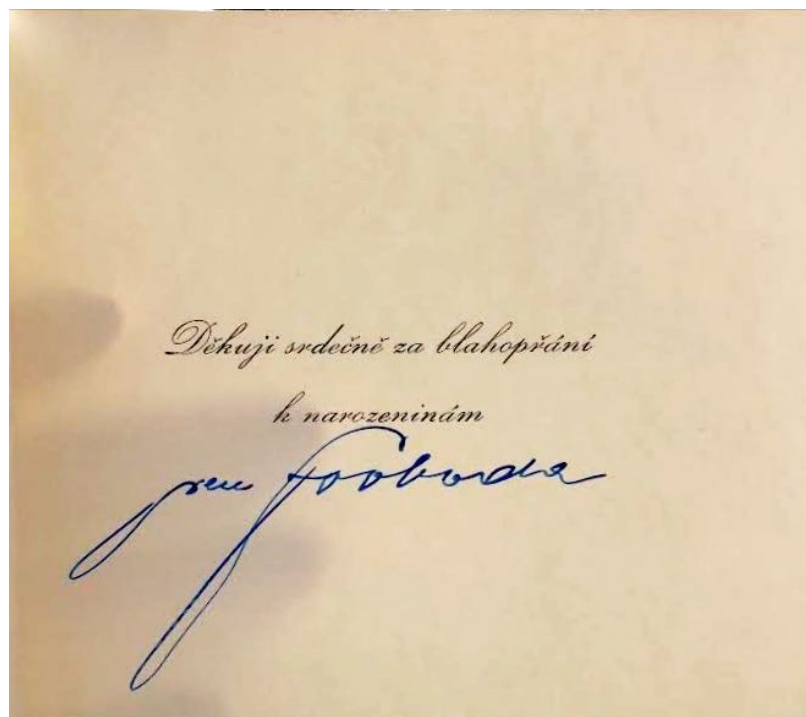 Děkuji srdečně za blahopřání
k narozeninám
Svoboda